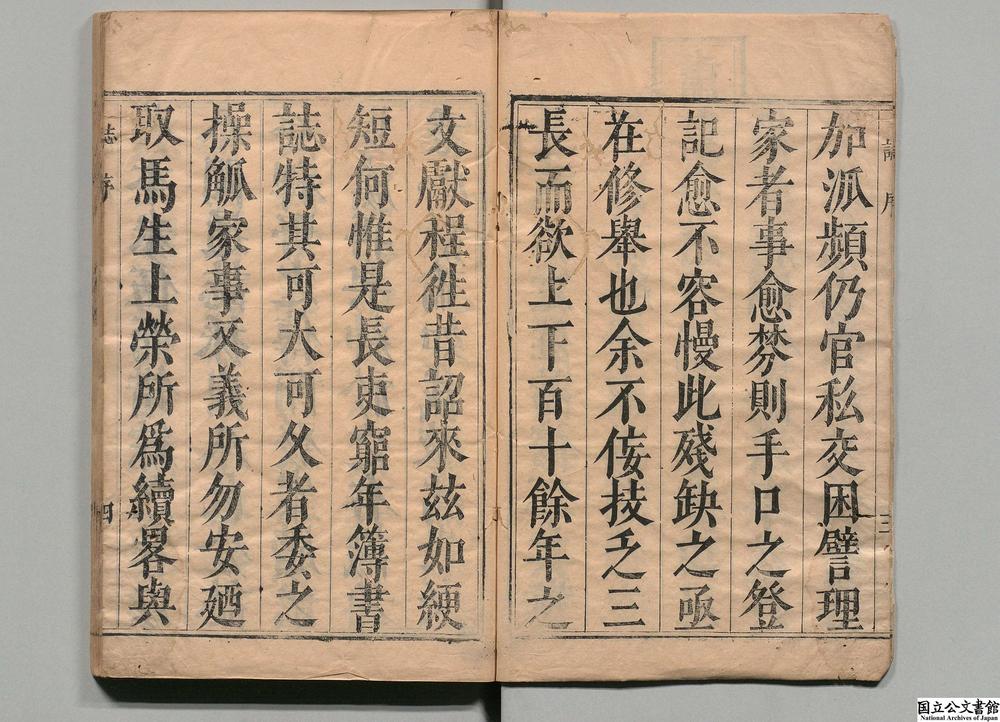 加派頻仍官私交困譬理
家者事愈棼則手口之登
記愈不容慢此殘缺之亟
在修舉也余不佞技乏三
長而欲上下百十餘年之
文獻程徃昔詔來玆如綆
短何惟是長吏窮年簿書
誌特其可大可久者委之
操觚家事又義所勿安廼
取馬生上榮所爲續畧與
誌序
三
誌序
四
国立公文書館
National Archives of Japan